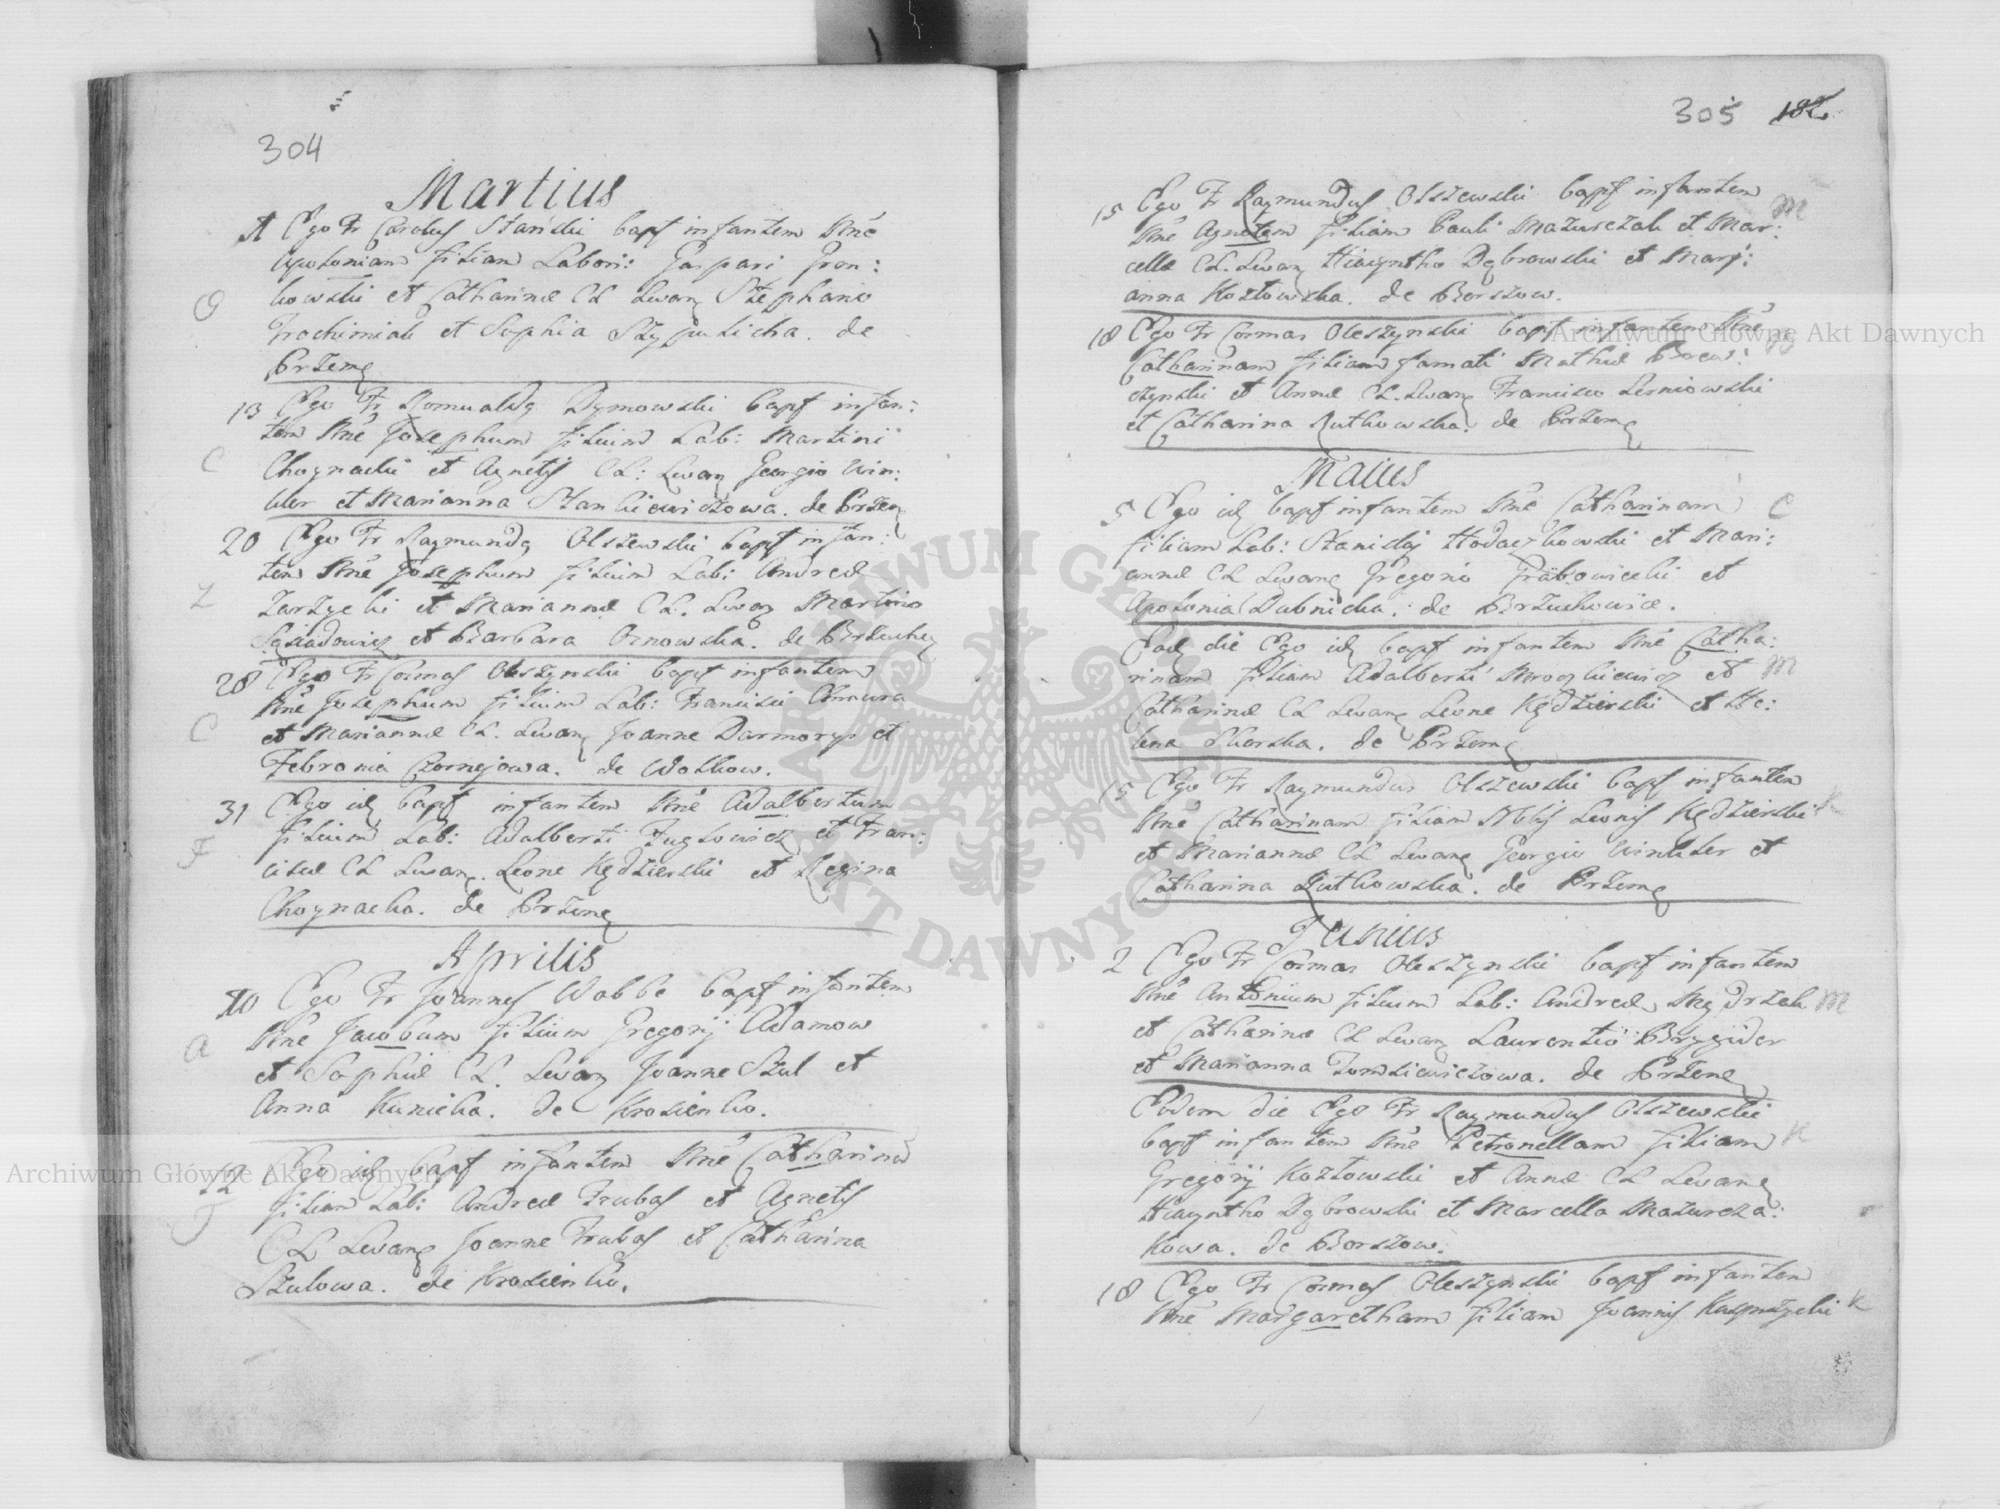 304
Martius
Ego Fr Carolus Stański bapt infantem Nne
Apoloniam filiam Labori: Gaspari Gron:
kowski et Catharinæ CL Levang Stephano
Trochimiak et Sophia Szypulicha. de
Przemę
G
13 Ego Fr Romualdg Dymowski bapt infan:
tem Nne Josephum filium Lab: Martini
Choynacki et Agnetis CL: Levang Georgio Win:
kler et Marianna Stankiewiczowa. de Przemę
C
20 Ego Fr Raymundg Olszewski bapt infan:
tem Nne Josephum filium Lab: Andreæ
Zarzycki et Mariannæ CL. Levang Martino
et Barbara Ornowska. de Brzuchę
Z
28 Ego Fr Cosmas Oleszynski bapt infantem
Nne Josephum filium Lab: Francisci Chmura
et Mariannæ CL. Levang Joanne Darmorys et
Febronia Czornejowa. de Wolkow.
C
31 Ego id bapt infantem Nne Adalbertum
filium Lab: Adalberti Fuglowicz et Fran:
ciscæ CL Levang. Leone Kędzierski et Regina
Choynacka. de Przemę
F
Aprilis
10 Ego Fr Joannes Wabbe bapt infantem
Nne Jacobum filium Gregorij Adamow
et Sophiæ CL. Levang Joanne Szul et
Anna Kunicka. de Krosienko.
A
12 Ego id bapt infantem Nne Catharinam
filiam Lab: Andreæ Trubas et Agnetis
CL Levang Joanne Trubas et Catharina
Szulowa. de Krosienko.
T
305 182
15 Ego Fr Raymundus Olszewski bapt infantem
Nne Agnetem filiam Pauli Mazurczak et Mar:
cellæ CL. Levang Hiacyntho Dąbrowski et Mari:
anna Kozłowska. de Borszow.
M
18 Ego Fr Cosmas Oleszynski bapt infantem Nne
Catharinam filiam famati Mathiæ Brew:
czynski et Annæ CL. Levang Francisco Lerniowski
et Catharina Rutkowska. de Przemę
B
Maius
5 Ego id bapt infantem Nne Catharinam
filiam Lab: Stanislai Hodaczkowski et Mari:
annæ CL Levang Gregorio Grabowiecki et
Apolonia Dubnicka. de Brzuchowice.
C
Eadę die Ego id bapt infantem Nne Catha:
rinam filiam Adalberti Mroczkiewicz et
Catharinæ CL Levang Leone Kędzierski et He:
lena Skorska. de Przemę
M
15 Ego Fr Raymundus Olszewski bapt infantem
Nne Catharinam filiam Nblis Leonis Kędzierski
et Mariannæ CL Levang Georgio Winkler et
Catharina Rutkowska. de Przemę
K
Junius
2 Ego Fr Cosmas Oleszynski bapt infantem
Nne Antonium filium Lab: Andreæ Mędrzak
et Catharinæ CL Levang Laurentio Brygider
et Marianna Tomkiewiczowa. de Przemę
M
Eodem die Ego Fr Raymundus Olszewski
bapt infantem Nne Petronellam filiam
Gregorij Kozłowski et Annæ CL Levang
Hiacyntho Dąbrowski et Marcella Mazurcza:
kowa. de Borszow.
K
18 Ego Fr Cosmas Oleszynski bapt infantem
Nne Margaretham filiam Joannis Kasprzycki
K
Archiwum Główne Akt Dawnych
Archiwum Główne Akt Dawnych
ARCHIWUM GŁÓWNE AKT DAWNYCH